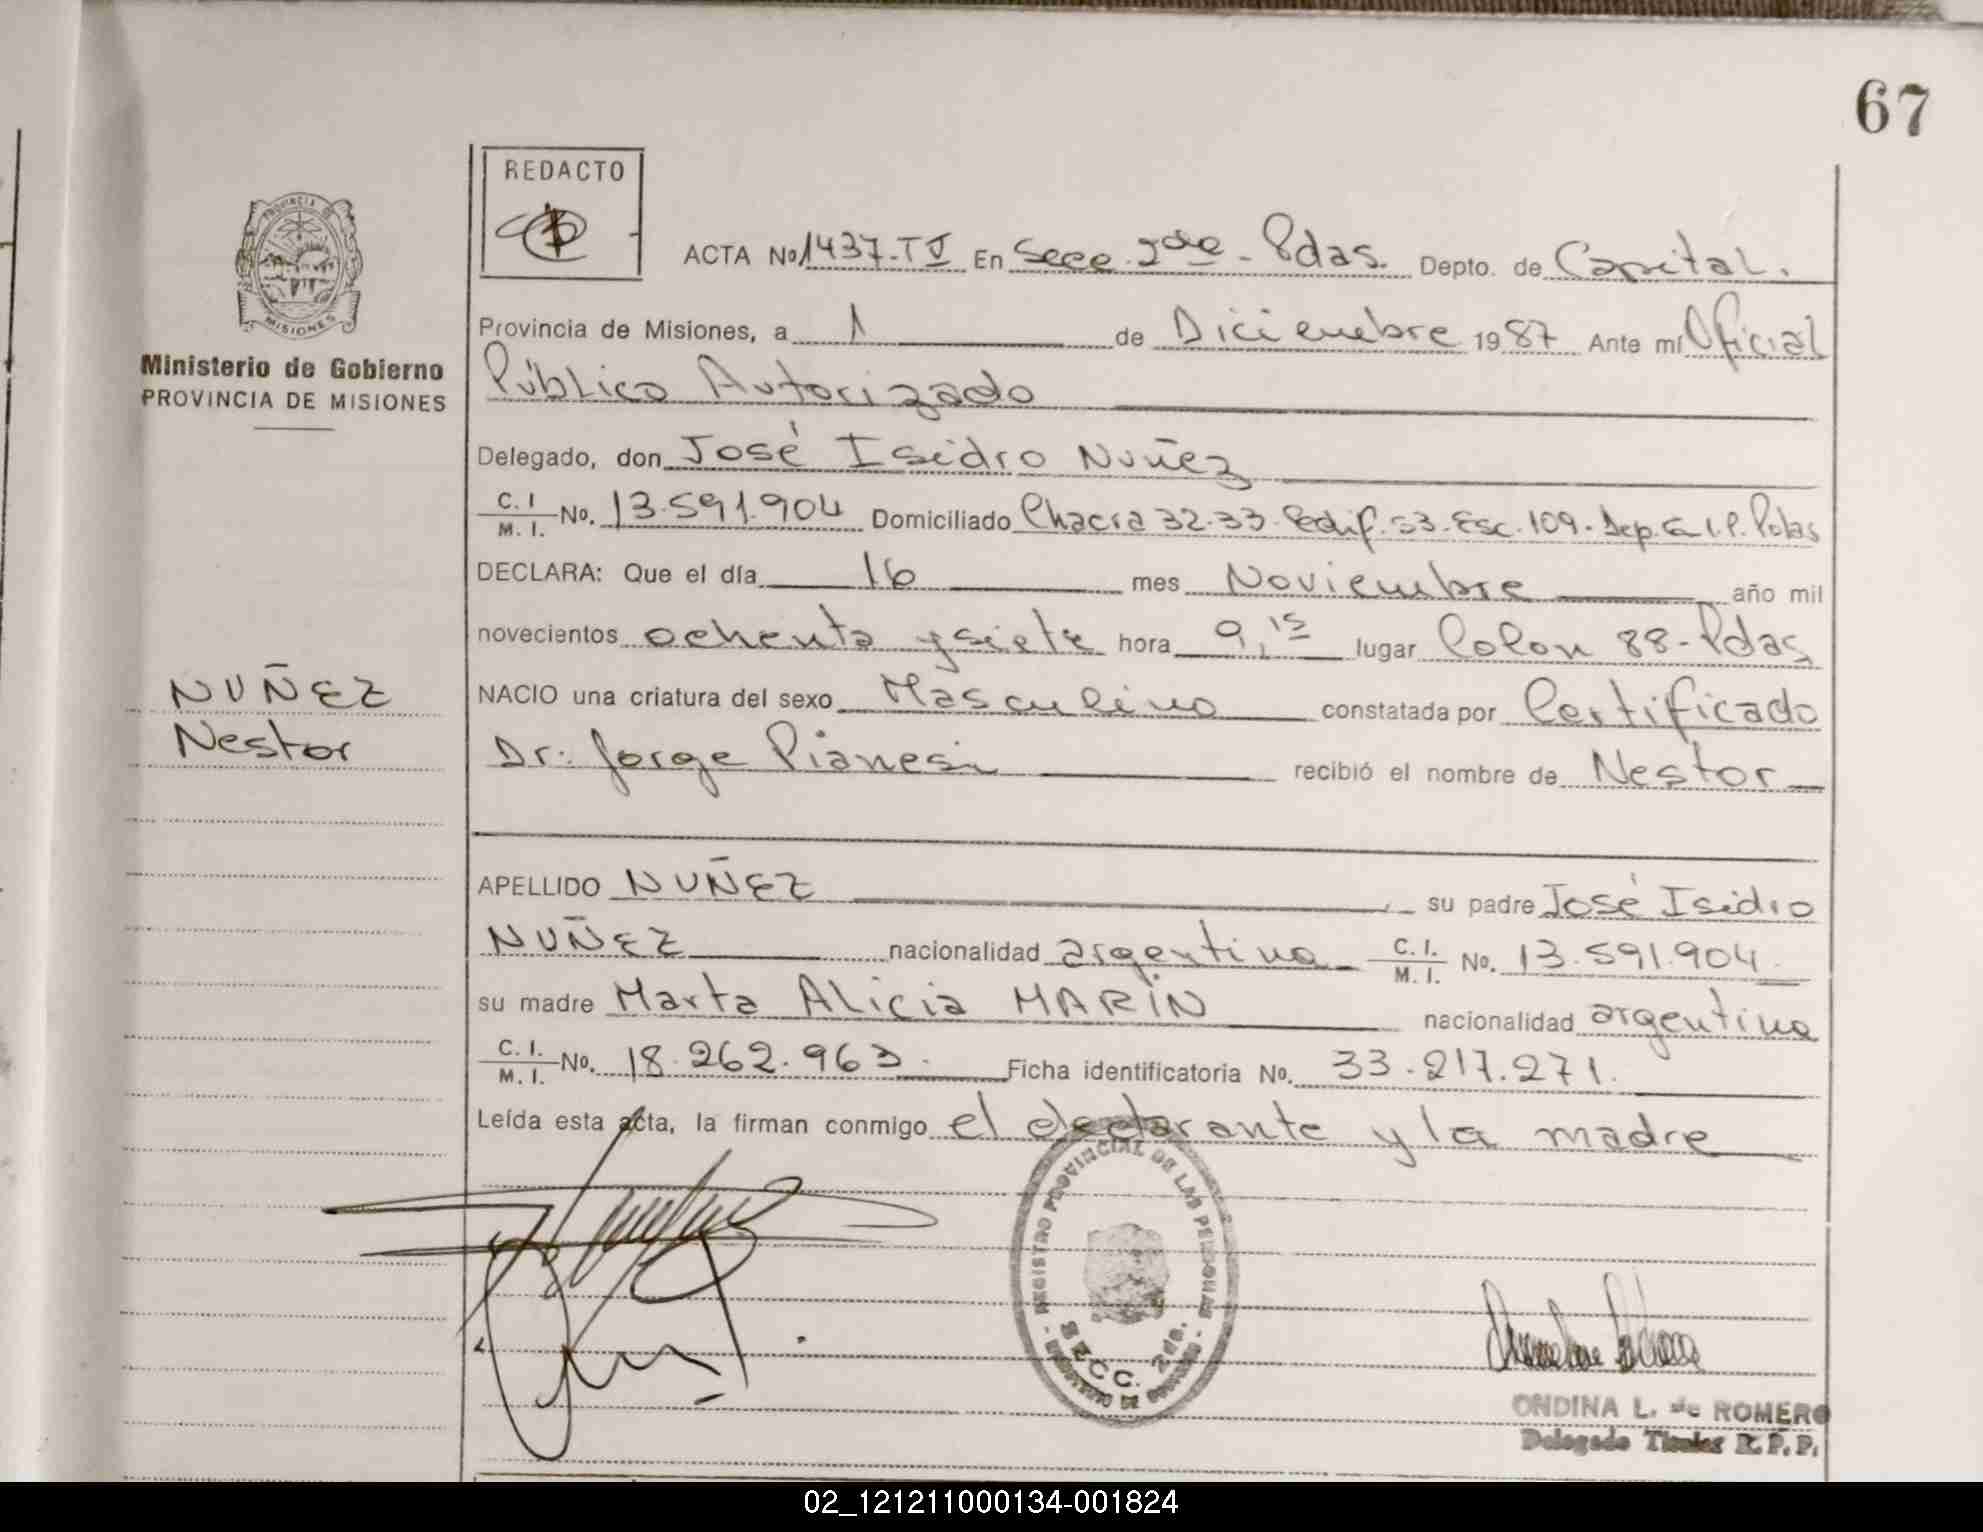 67
REDACTO
ACTA No 1437-TV En Secc. 2da - Pdas. Depto. de Capital.
PROVINCIA DE
MISIONES
Provincia de Misiones, a 1 de Diciembre 1987 Ante mí Oficial
Ministerio de Gobierno
PROVINCIA DE MISIONES
Público Autorizado
Delegado, don José Isidro Nuñez
C. I. M. I. No. 13.591.904 Domiciliado Chacra 32-33. Edif. 53. Esc. 109. Dep. I.P. Pdas
DECLARA: Que el día 16 mes Noviembre año mil
novecientos ochenta y siete hora 9,15 lugar Colon 88-Pdas
NUÑEZ
Nestor
NACIO una criatura del sexo Masculino constatada por Certificado
Dr: Jorge Pianesi recibió el nombre de Nestor
APELLIDO NUÑEZ su padre José Isidro
NUÑEZ nacionalidad argentina C. I. M. I. No. 13.591.904
su madre Marta Alicia MARÍN nacionalidad argentina
C. I. M. I. No. 18.262.963. Ficha identificatoria No. 33.217.271.
Leída esta acta, la firman conmigo el declarante y la madre
REGISTRO PROVINCIAL DE LAS PERSONAS
SECC. 2da.
ONDINA L. de ROMERO
Delegado Titular R. P. P.
02_121211000134-001824